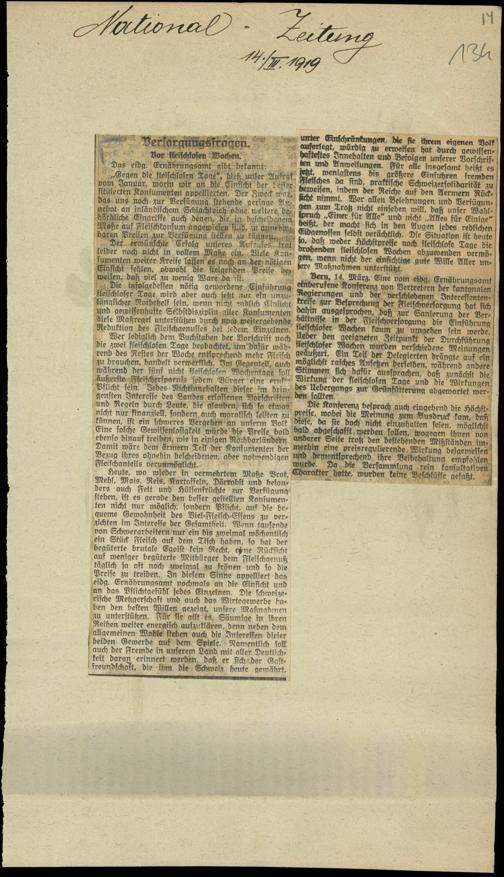 National - Zeitung
14./III. 1919
14
134
Versorgungsfragen.
Vor fleischlosen Wochen.
Das eidg. Ernährungsamt gibt bekannt:
„Gegen die fleischlosen Tage“, hieß unser Aufruf
vom Januar, worin wir an die Einsicht der besser
situierten Konsumenten appellierten. Der Zweck war,
das uns noch zur Verfügung stehende geringe An-
gebot an inländischem Schlachtvieh ohne weitere be-
hördliche Eingriffe auch denen, die in bescheidenem
Maße auf Fleischkonsum angewiesen sind, zu annehm-
baren Preisen zur Verfügung stellen zu können.
Der erwünschte Erfolg unseres Aufrufes trat
leider noch nicht in vollem Maße ein. Viele Kon-
sumenten weiter Kreise ließen es noch an der nötigen
Einsicht fehlen, obwohl die steigenden Preise be-
weisen, daß viel zu wenig Ware da ist.
Die infolgedessen nötig gewordene Einführung
fleischloser Tage wird aber auch jetzt nur ein unzu-
länglicher Notbehelf sein, wenn nicht endlich Einsicht
und gewissenhafte Selbstdisziplin aller Konsumenten
diese Maßregel unterstützen durch noch weitergehende
Reduktion des Fleischgenusses bei jedem Einzelnen.
Wer lediglich dem Buchstaben der Vorschrift nach
die zwei fleischlosen Tage beobachtet, um dafür wäh-
rend des Restes der Woche entsprechend mehr Fleisch
zu brauchen, handelt verwerflich. Im Gegenteil, auch
während der fünf nicht fleischlosen Wochentage soll
äußerste Fleischersparnis jedem Bürger eine ernste
Pflicht sein. Jedes Nichteinhalten dieser im drin-
gensten Interesse des Landes erlassenen Vorschriften
und Regeln durch Leute, die glauben, sich so etwas
nicht nur finanziell, sondern auch moralisch leisten zu
können, ist ein schweres Vergehen an unserem Volk
Eine solche Gewissenlosigkeit würde die Preise bald
ebenso hinauf treiben, wie in einigen Nachbarländern.
Damit wäre dem ärmern Teil der Konsumenten der
Bezug ihres ohnehin bescheidenen, aber notwendigen
Fleischanteils verunmöglicht.
Heute, wo wieder in vermehrtem Maße Brot,
Mehl, Mais, Reis, Kartoffeln, Dörrobst und beson-
ders auch Fett und Hülsenfrüchte zur Verfügung
stehen, ist es gerade den besser gestellten Konsumen-
ten nicht nur möglich, sondern Pflicht, auf die be-
queme Gewohnheit des Viel-Fleisch-Essens zu ver-
zichten im Interesse der Gesamtheit. Wenn tausende
von Schwerarbeitern nur ein bis zweimal wöchentlich
ein Stück Fleisch auf dem Tisch haben, so hat der
begüterte brutale Egoist kein Recht, ohne Rücksicht
auf weniger begüterte Mitbürger dem Fleischgenuß
täglich ja oft noch zweimal zu frönen und so die
Preise zu treiben. In diesem Sinne appelliert das
eidg. Ernährungsamt nochmals an die Einsicht und
an das Pflichtgefühl jedes Einzelnen. Die schweize-
rische Metzgerschaft und auch das Wirtegewerbe ha-
ben den besten Willen gezeigt, unsere Maßnahmen
zu unterstützen. Für sie gilt es, Säumige in ihren
Reihen weiter energisch aufzuklären, denn neben dem
allgemeinen Wohle stehen auch die Interessen dieser
beiden Gewerbe auf dem Spiele. Namentlich soll
auch der Fremde in unserem Land mit aller Deutlich-
keit daran erinnert werden, daß er sich der Gast-
freundschaft, die ihm die Schweiz heute gewährt,
unter Einschränkungen, die sie ihrem eigenen Volk
auferlegt, würdig zu erweisen hat durch gewissen-
haftestes Innehalten und Befolgen unserer Vorschrif-
ten und Anweisungen. Für alle insgesamt heißt es
jetzt, wenigstens bis größere Einfuhren fremden
Fleisches da sind, praktische Schweizersolidarität zu
beweisen, indem der Reiche auf den Aermern Rück-
sicht nimmt. Wer allen Belehrungen und Verfügun-
gen zum Trotz nicht einsehen will, daß unser Wahl-
spruch „Einer für Alle“ und nicht „Alles für Einige“
heißt, der macht sich in den Augen jedes redlichen
Eidgenossen selbst verächtlich. Die Situation ist heute
so, daß weder Höchstpreise noch fleischlose Tage die
drohenden fleischlosen Wochen abzuwenden vermö-
gen, wenn nicht der einsichtige gute Wille Aller un-
sere Maßnahmen unterstützt.
Bern, 14. März. Eine vom eidg. Ernährungsamt
einberufene Konferenz von Vertretern der kantonalen
Regierungen und der verschiedenen Interessenten-
kreise zur Besprechung der Fleischversorgung hat sich
dahin ausgesprochen, daß zur Sanierung der Ver-
hältnisse in der Fleischversorgung die Einführung
fleischloser Wochen kaum zu umgehen sein werde.
Ueber den geeigneten Zeitpunkt der Durchführung
fleischloser Wochen wurden verschiedene Meinungen
geäußert. Ein Teil der Delegierten drängte auf ein
möglichst rasches Ansetzen derselben, während andere
Stimmen sich dafür aussprachen, daß zunächst die
Wirkung der fleischlosen Tage und die Wirkungen
des Ueberganges zur Grünfütterung abgewartet wer-
den sollten.
Die Konferenz besprach auch eingehend die Höchst-
preise, wobei die Meinung zum Ausdruck kam, daß
diese, da sie doch nicht einzuhalten seien, möglichst
bald abgeschafft werden sollen, wogegen ihnen von
anderer Seite trotz den bestehenden Mißständen im-
merhin eine preisregulierende Wirkung beigemessen
und dementsprechend ihre Beibehaltung empfohlen
wurde. Da die Versammlung rein konsultativen
Charakter hatte, wurden keine Beschlüsse gefaßt.